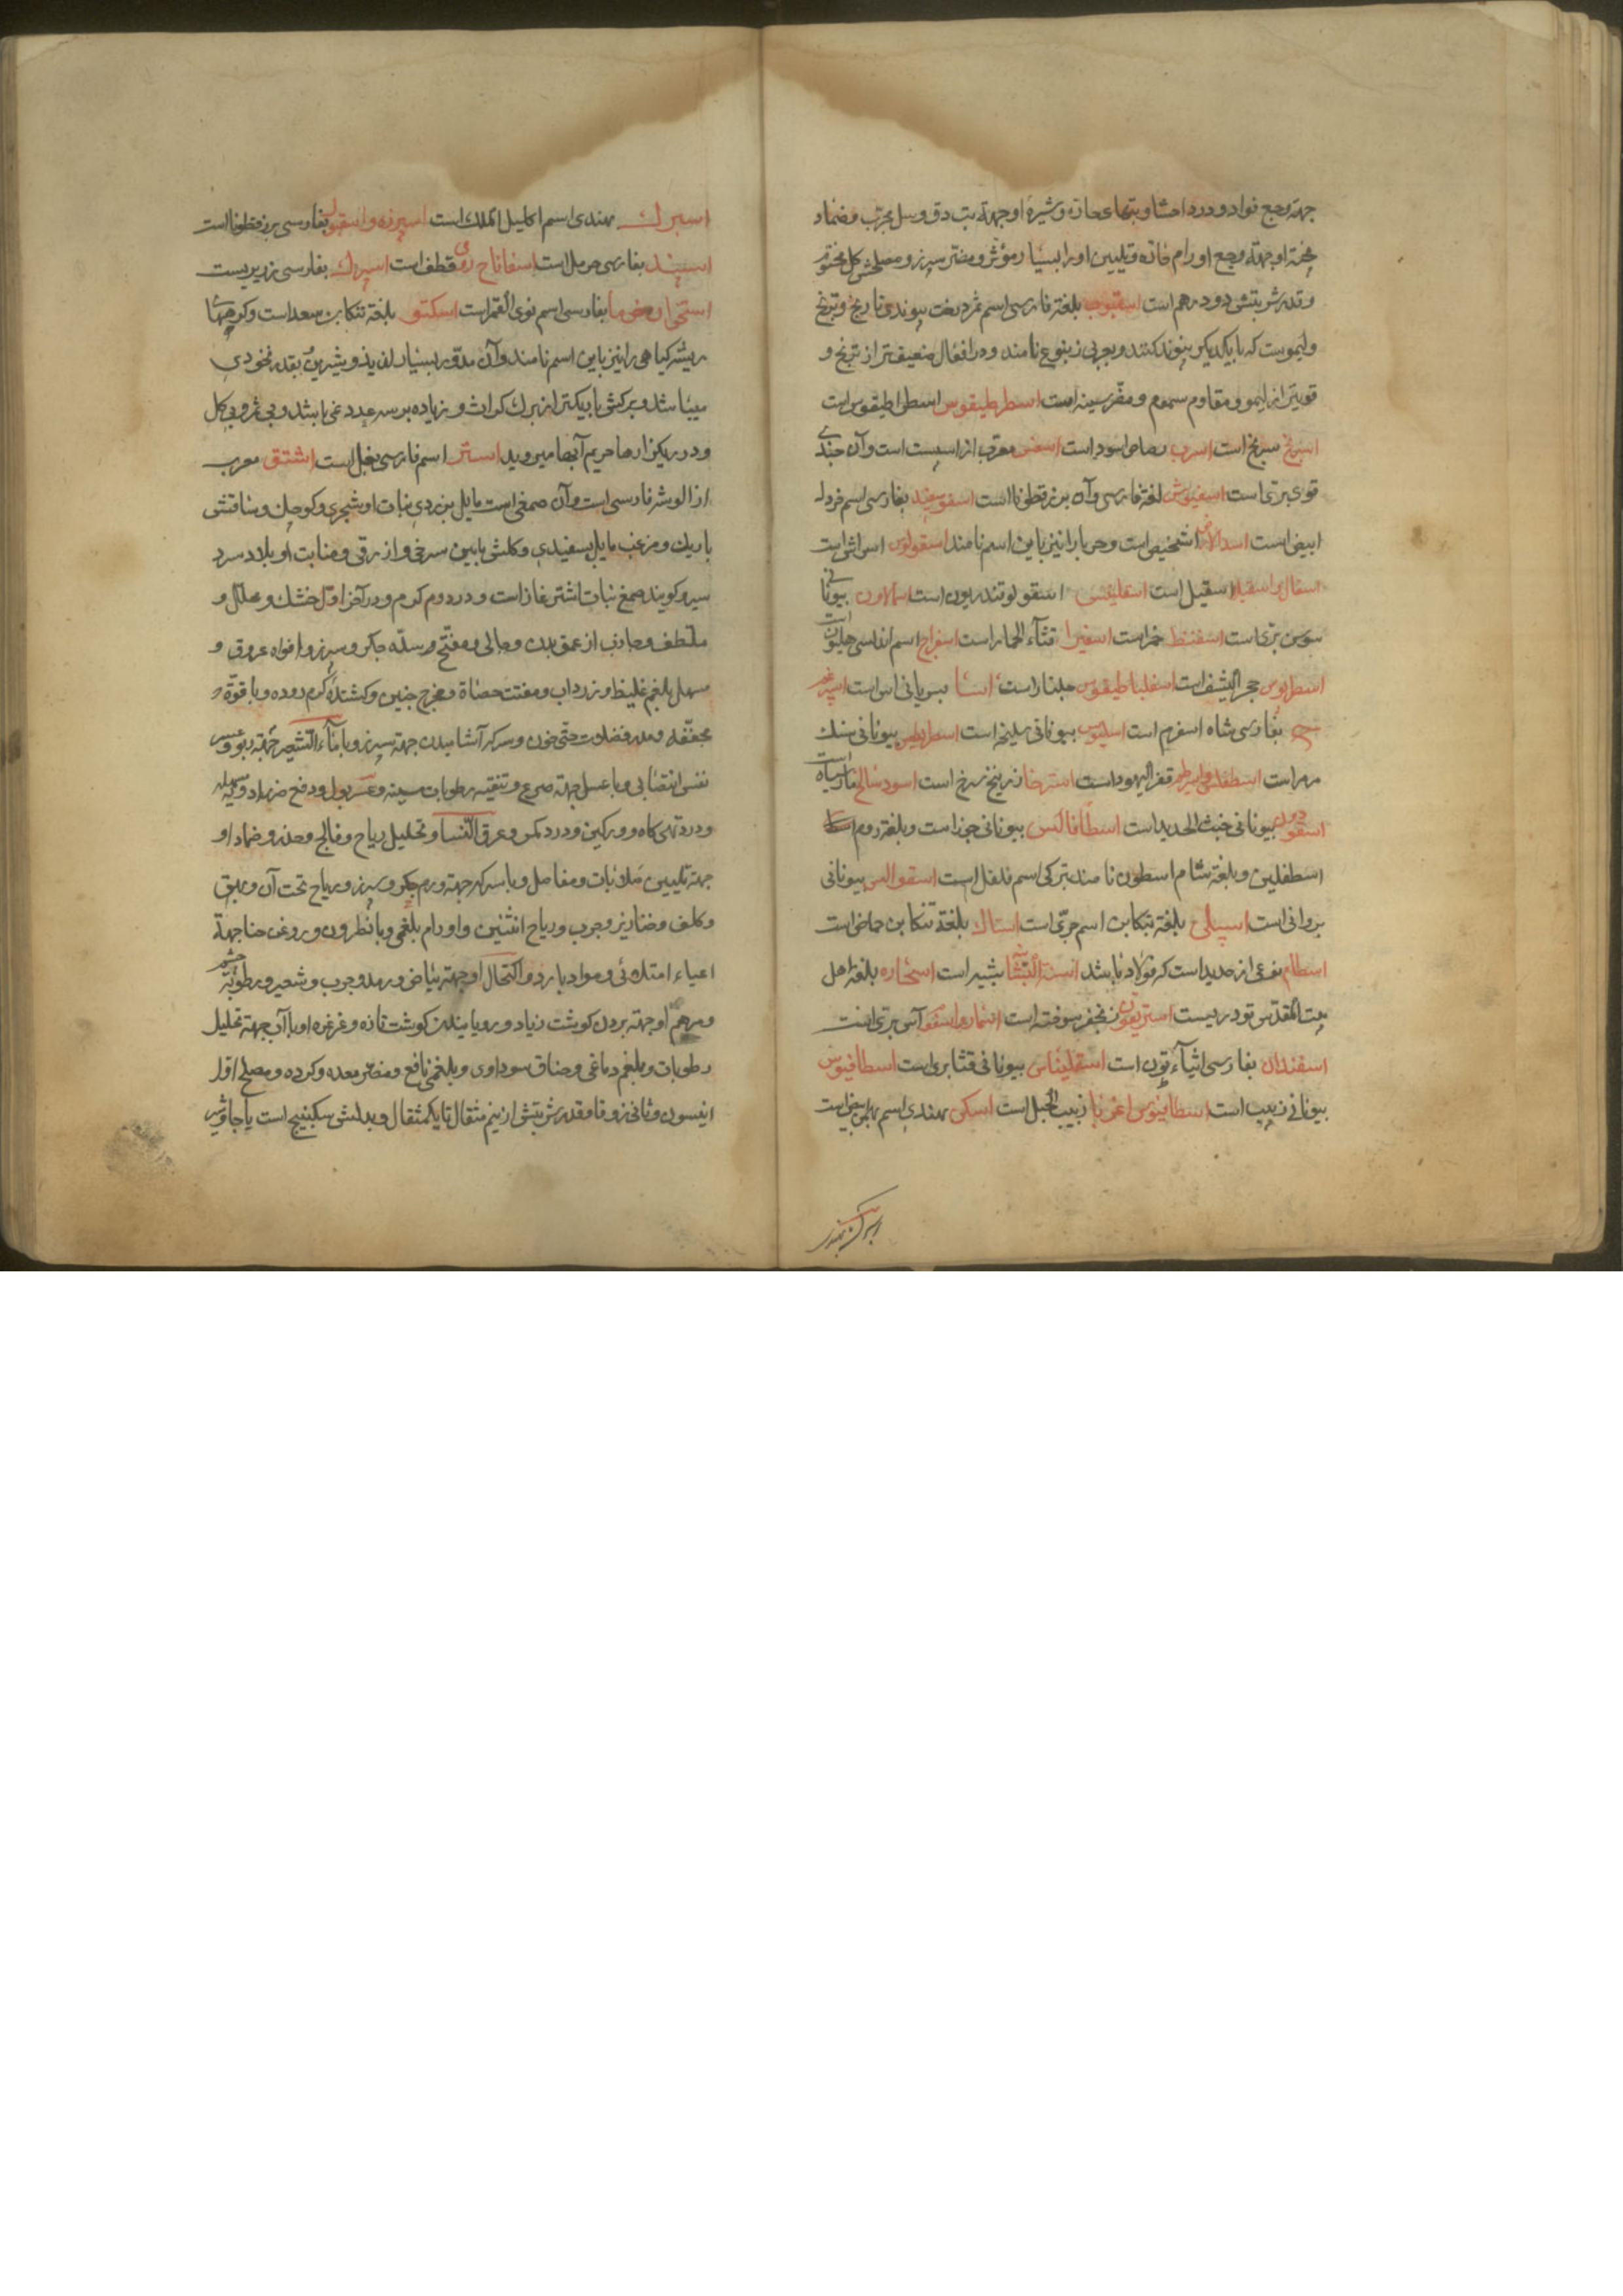 جهة وجع فواد و درد احشا و بتهاء حاره و شیرهٔ او جهة تب دق و سل مجرّب و ضماد
پختهٔ او جهة وجع اورام حاره و تلیین اورا بسیار مؤثر و مضر سپرز و مصلحش گل مختوم
و قدر شربتش دو درهم است اسقنبوب بلغة فارسی اسم ثمر درخت پیوندی نارنج و ترنج
و لیموست که با یکدیگر پیوند کنند و بعربی زنبوع نامند و در افعال ضعیف‌تر از ترنج و
قویتر از لیمو و مقاوم سموم و مضر سینه است اسطرطیقوس اسطراطیقوس است
اسرنج سرنج است اسرب رصاص اسود است اسفس معرب از اسپست است و آن جندی
قوی بری است اسفیوش لغة فارسی و آن بزرقطونا است اسفوسفید بفارسی اسم خردل
ابیض است اسد الارض اشخیص است و حربا را نیز باین اسم نامند اسقولوس اسراش است
اسقال و اسقیلا اسقیل است اسقلینس اسقولوقندریون است اسالاون بیونانی
سوسن بری است اسفنط خمر است اسفیرا قثاء الحمار است اسفراج اسم اندلسی هلیون است
اسطریوس حجر الیشف است اسفلیناطیقوس جلنار است اسا بسریانی آس است اسپرغم
بفارسی شاه اسفرم است اسلیوس بیونانی سلیخه است اسطریطس بیونانی سنک
مهر است قفر الیهود است استرخا زرنیخ سرخ است اسود سالخ مار سیاه است
بیونانی خبث الحدید است اسطافالنس بیونانی جزر است و بلغة روم
اسطفلین و بلغة شام اسطون نامند بترکی اسم فلفل است اسقوالس بیونانی
بروانی است اسپیلی بلغة تنکابن اسم جرّی است استاک بلغة تنکابن حماض است
اسطام نوعی از حدید است که فولاد نباشد بشبیر است استخاره بلغة اهل
بیت المقدس تودریست استریقون زنجفر سوخته است آس بری است
اسفندان بفارسی است اسقلیناس بیونانی قثا بری است اسطافیوس
بیونانی زبیب است اسطافیوس اغریا زبیب الجبل است اسکن بهندی اسم بهمن سفید است
اسپرک بهندی
اسپرک بهندی اسم اکلیل الملک است اسپرزه و اسبغول بفارسی بزرقطونا است
اسپند بفارسی حرمل است اسفاناخ رومی قطف است اسپرک بفارسی زریر یست
استخوان خرما بفارسی اسم نوی التمر است اسکتو بلغة تنکابن سعد است و کرمهای
ریشه گیاهی را نیز باین اسم نامند و آن مدور بسیار لذیذ و شیرین بقدر نخودی
میباشد و برکش باریکتر از برک کراث و زیاده بر سه عدد نمی باشد و بی ثمر و بی گل
و در ریکزارها حریم آبها میروید استر اسم فارسی بغل است اشتق معرب
از الوشه فارسی است و آن صمغی است مایل بزردی نبات او شجری و کوچک و ساقش
باریک و مزغب مایل بسفیدی و کلش مابین سرخی و ازرقی و منابت او بلاد سرد
سیر و کویند صمغ نبات اشترغاز است و در دوم کرم و در آخر اول خشک و محلل و
ملطف و جاذب از عمق بدن و جالی و مفتح و سدّه جکر و سپرز و افواه عروق و
مسهل بلغم غلیظ و زرداب و مفتت حصاة و مخرج جنین و کشنده کرم روده و با قوة
مجففه و مدر فضلات حتی خون و سرکه آشامیدن جهة سپرز و با ماء الشعیر جهة ربو و عسر
نفس انتصابی و با عسل جهة صرع و تنقیه رطوبات سینه و عسر بول و دفع
و درد تهی کاه و ورکین و درد کمر و عرق النسا و تحلیل ریاح و فالج و خدر و ضماد او
جهة تلیین صلابات و مفاصل و با سرکه جهة ورم جکر و سپرز و ریاح تحت آن و بهق
و کلف و خنازیر و جرب و ریاح انثیین و اورام بلغمی و با نطرون و روغن حنا جهة
اعیاء امتلائی و مواد بارده و اکتحال او جهة بیاض و رمد و جرب و شعیره و رطوبة چشم
و مرهم او جهة بردن کوشت زیاد و رویانیدن کوشت تازه و غرغره او با آن جهة تحلیل
رطوبات و بلغم دماغی و خناق سوداوی و بلغمی نافع و مضر معده و کرده و مصلح اول
انیسون و ثانی زوفا و قدر شربتش از نیم مثقال تا یکمثقال و بدلش سکبینج است یا جاوشیر